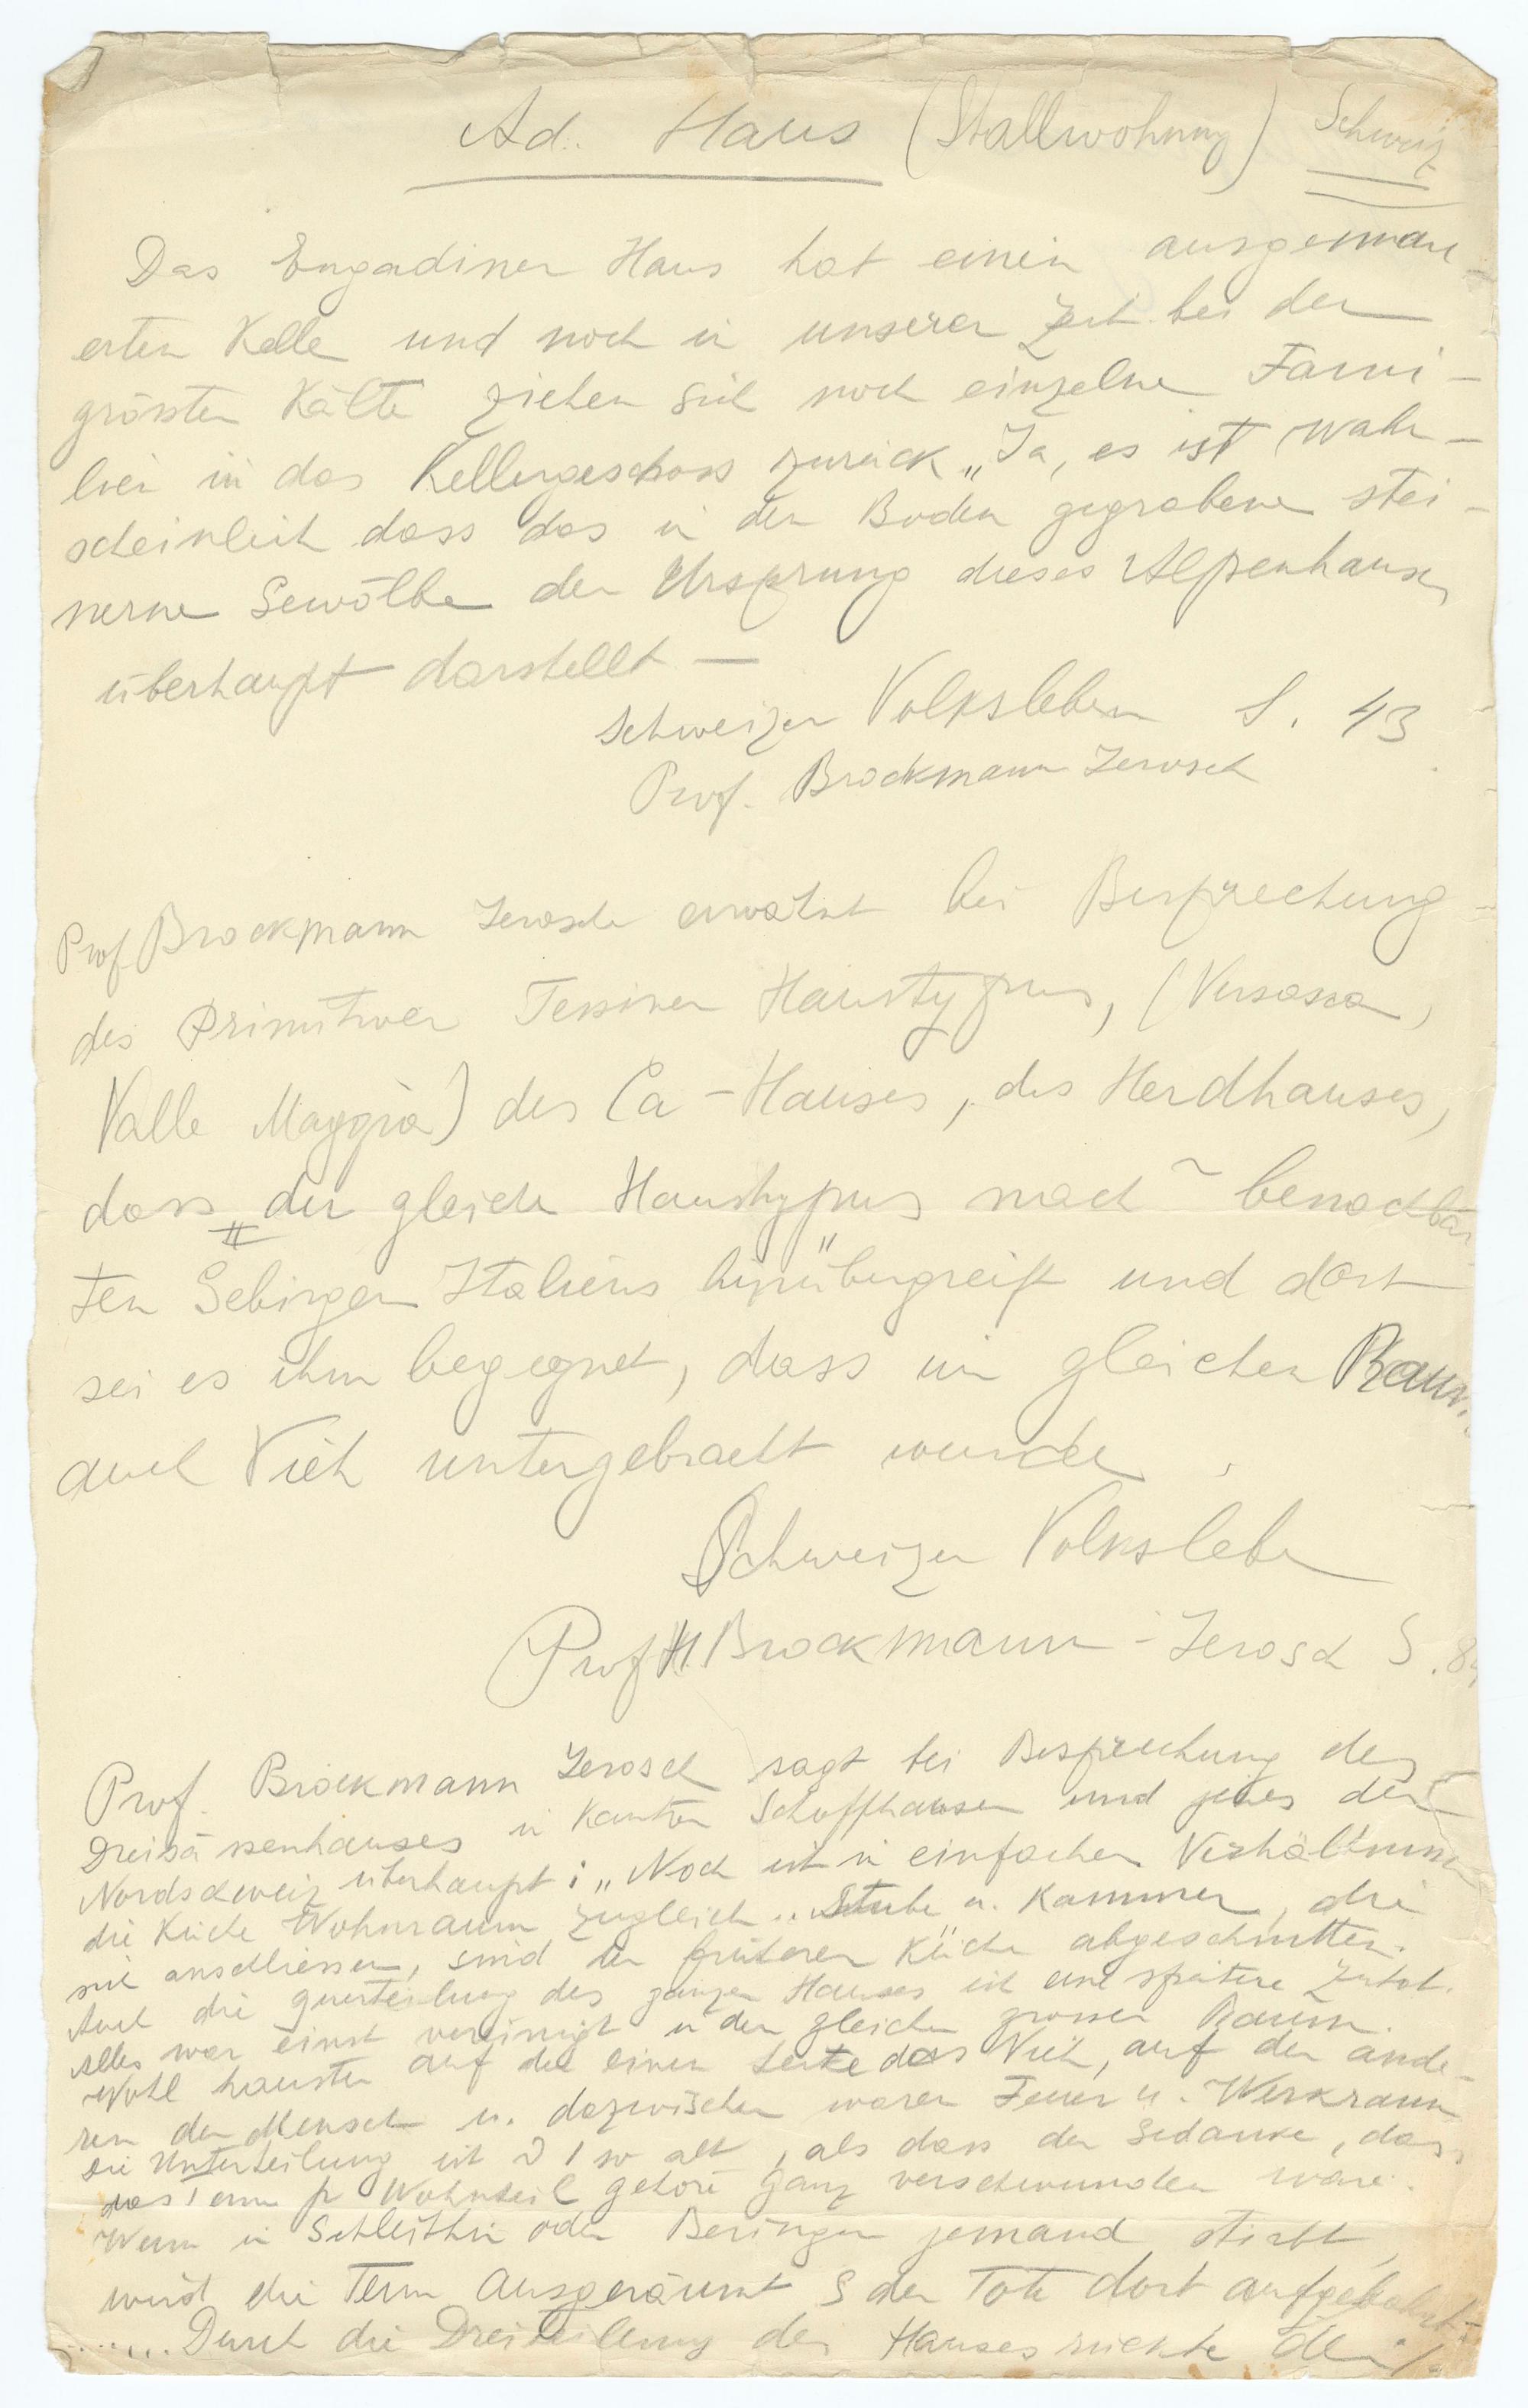 Ad. Haus (Stallwohnung) Schweiz
Das Engadiner Haus hat einen ausgemau-
erten Keller und noch in unserer Zeit bei der
grössten Kälte ziehen sich noch einzelne Fami-
lien in das Kellergeschoss zurück „Ja, es ist wahr-
scheinlich dass das in den Boden gegrabene stei-
nerne Gewölbe den Ursprung dieses Alpenhauses
überhaupt darstellt —
Schweizer Volksleben S. 43
Prof. Brockmann Jerosch
Prof Brockmann Jerosch erwähnt bei Besprechung
des Primitiven Tessiner Haustypus, (Versasca,
Valle Maggia) des Ca-Hauses, des Herdhauses,
dass „der gleiche Haustypus nach benachbar
ten Gebirgen Italiens hinübergreift und dort
sei es ihm begegnet, dass im gleichen Raum
auch Vieh untergebracht wurde.
Schweizer Volksleben
Prof H. Brockmann-Jerosch S.
Prof. Brockmann Jerosch sagt bei Besprechung des
Dreisässenhauses in Kanton Schaffhausen und jenes der
Nordschweiz überhaupt: „Noch ist in einfachen Verhältnissen
die Küche Wohnraum zugleich .. Stube u. Kammer, die
sich anschliessen, sind der früheren Küche abgeschnitten.
Auch die querteilung des ganzen Hauses ist eine spätere Zutat.
Alles war einst vereinigt in den gleichen grossen Raum.
Wohl hausten auf der einen Seite das Vieh, auf der ande-
ren der Mensch u. dazwischen waren Feuer u. Werkraum
Die Unterteilung ist so alt, als dass der Gedanke, dass
das Tenn Wohnteil gehöre ganz verschwunden wäre.
Wenn in Schleithin oder Beringen jemand stirbt,
wird die Tenn ausgeräumt der Tote dort aufgebahrt.
....... Durch die Dreiteilung des Hauses rückte